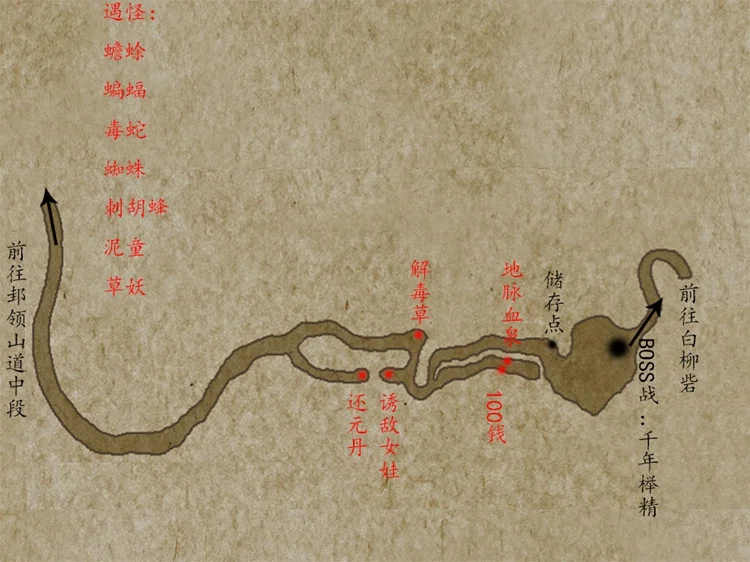 遇怪:
蟾蜍
蝙蝠
毒蛇
蜘蛛
刺胡蜂
泥童
草妖
前往邽领山道中段
解毒草
地脉血泉
储存点
前往白柳砦
还元丹
诱敌女娃
100钱
BOSS战..千年榉精